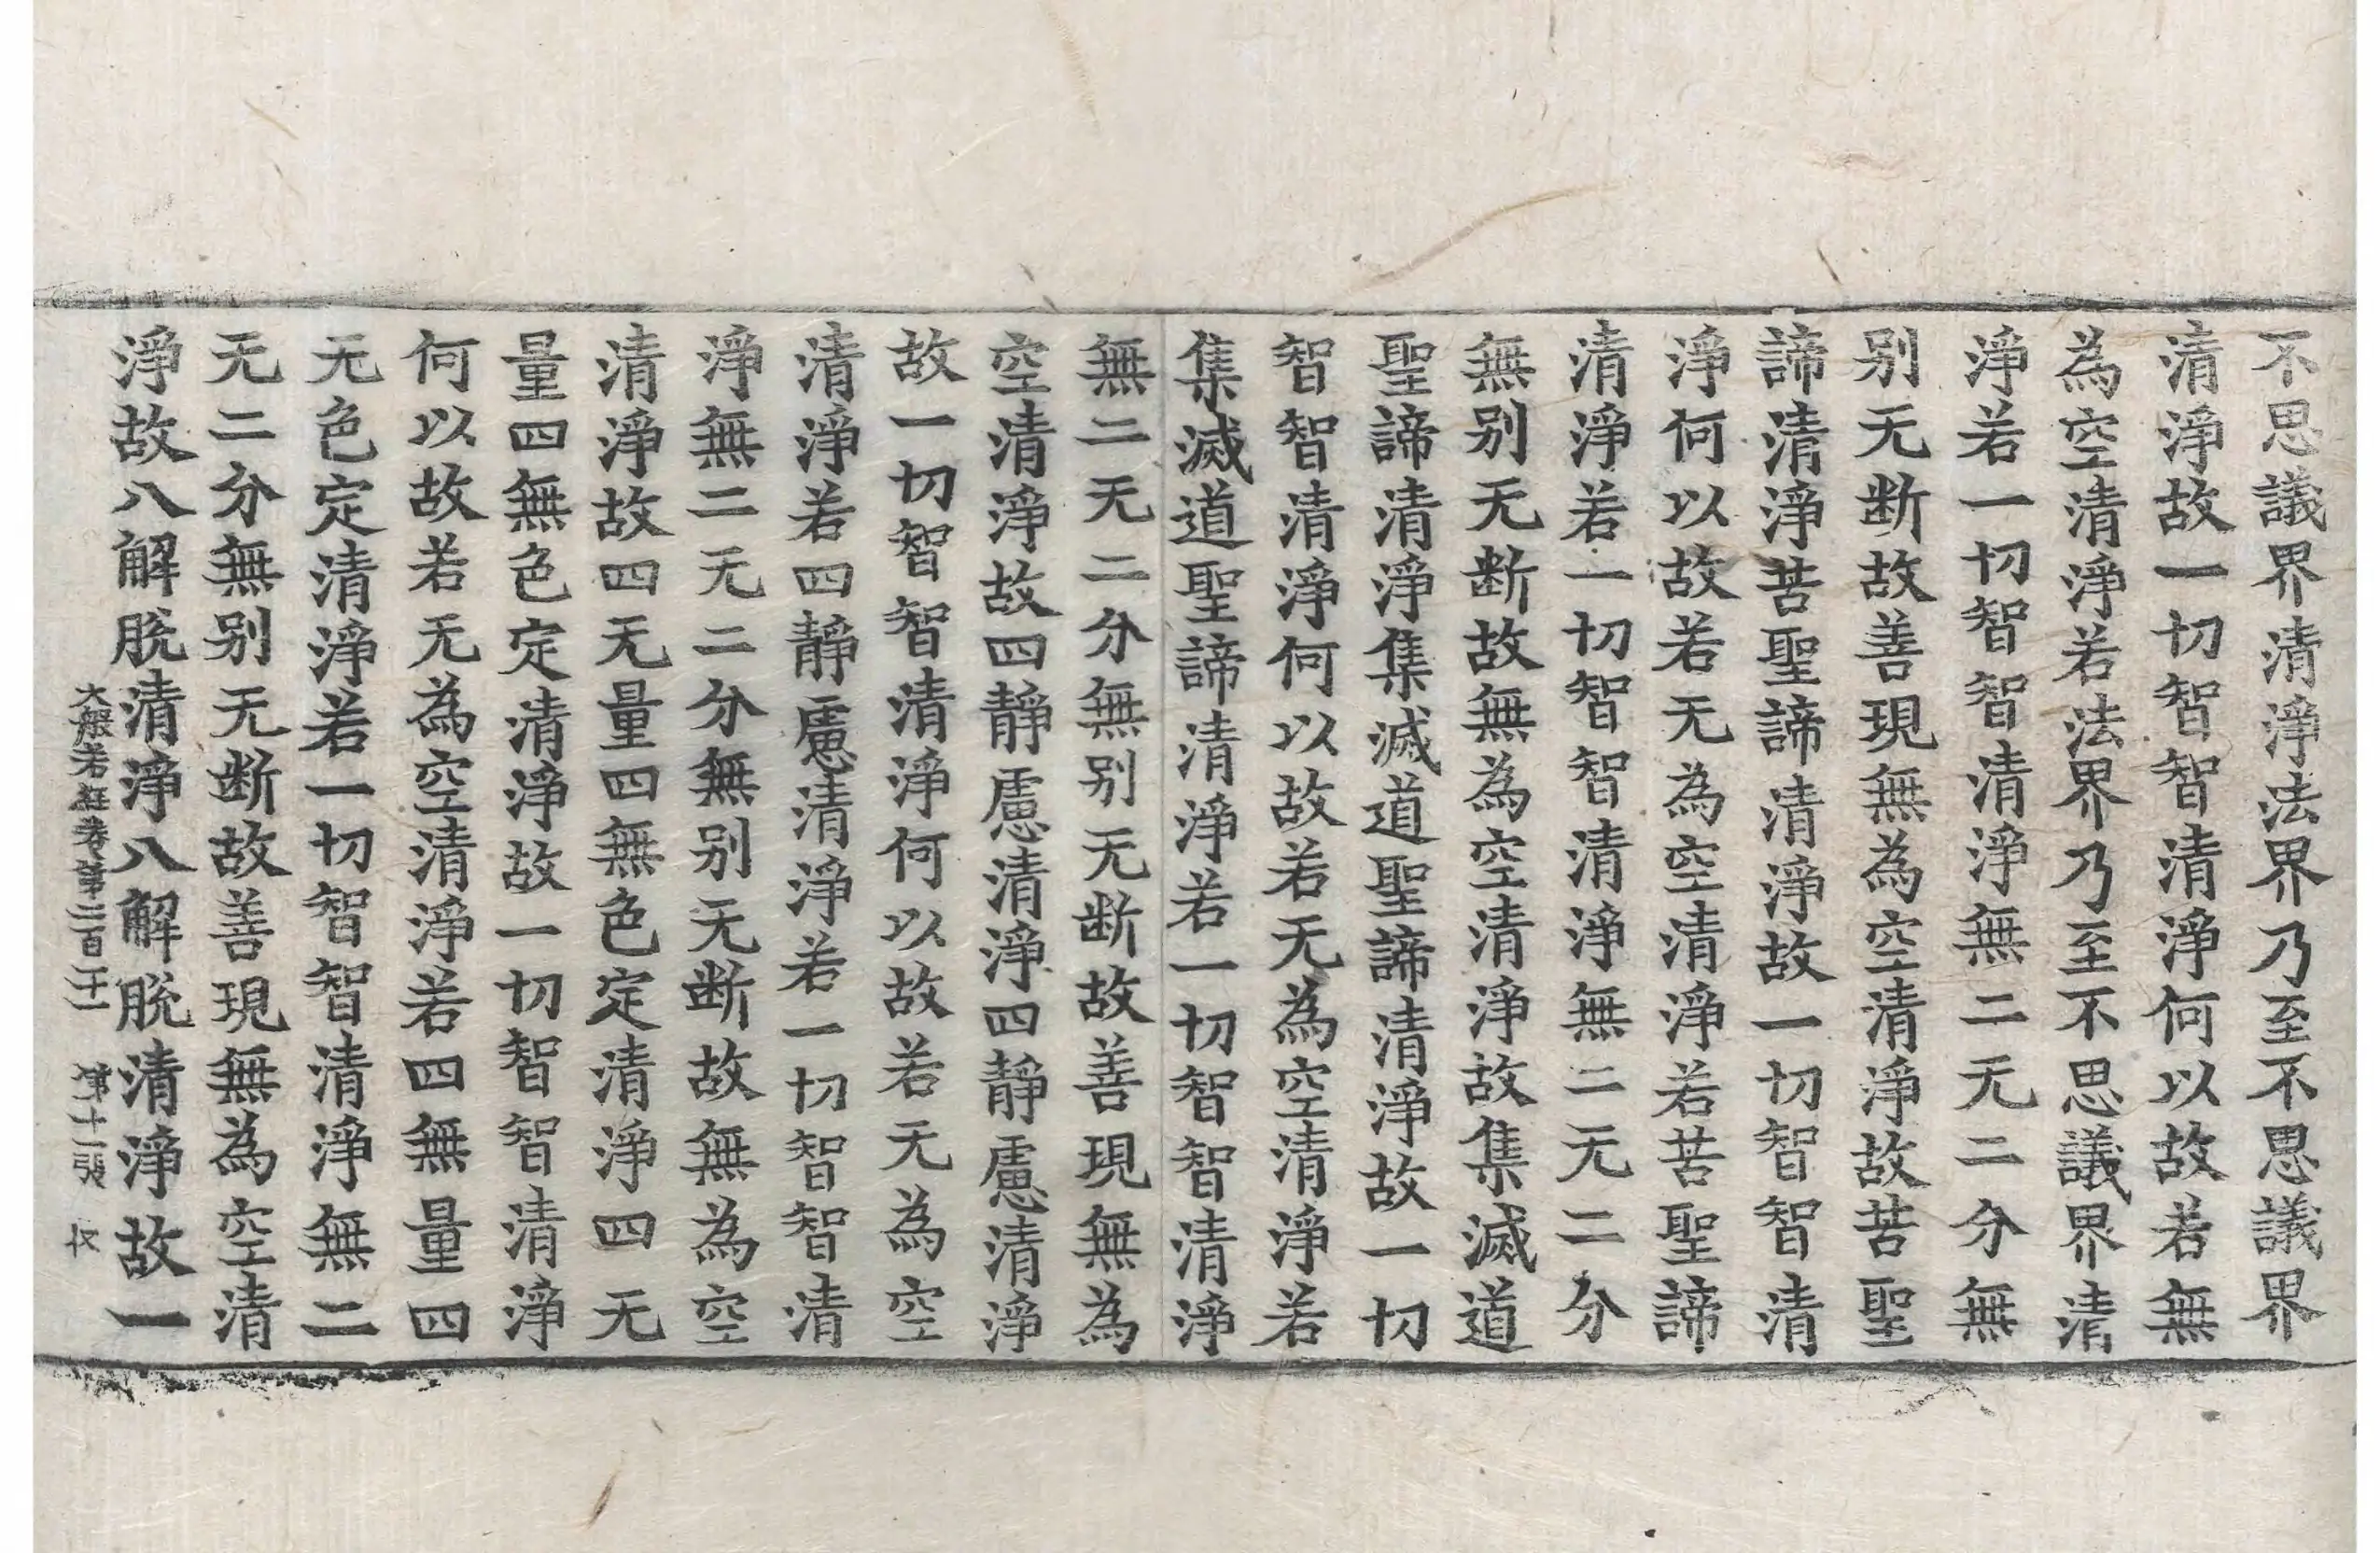 不思議界清淨法界乃至不思議界
清淨故一切智智清淨何以故若無
為空清淨若法界乃至不思議界清
淨若一切智智清淨無二无二分無
别无断故善現無為空清淨故苦聖
諦清淨苦聖諦清淨故一切智智清
淨何以故若无為空清淨若苦聖諦
清淨若一切智智清淨無二无二分
無别无断故無為空清淨故集滅道
聖諦清淨集滅道聖諦清淨故一切
智智清淨何以故若无為空清淨若
集滅道聖諦清淨若一切智智清淨
無二无二分無别无断故善現無為
空清淨故四靜慮清淨四靜慮清淨
故一切智智清淨何以故若无為空
清淨若四靜慮清淨若一切智智清
淨無二无二分無别无断故無為空
清淨故四无量四無色定清淨四无
量四無色定清淨故一切智智清淨
何以故若无為空清淨若四無量四
无色定清淨若一切智智清淨無二
无二分無别无断故善現無為空清
淨故八解脫清淨八解脫清淨故一
大般若經卷第二百